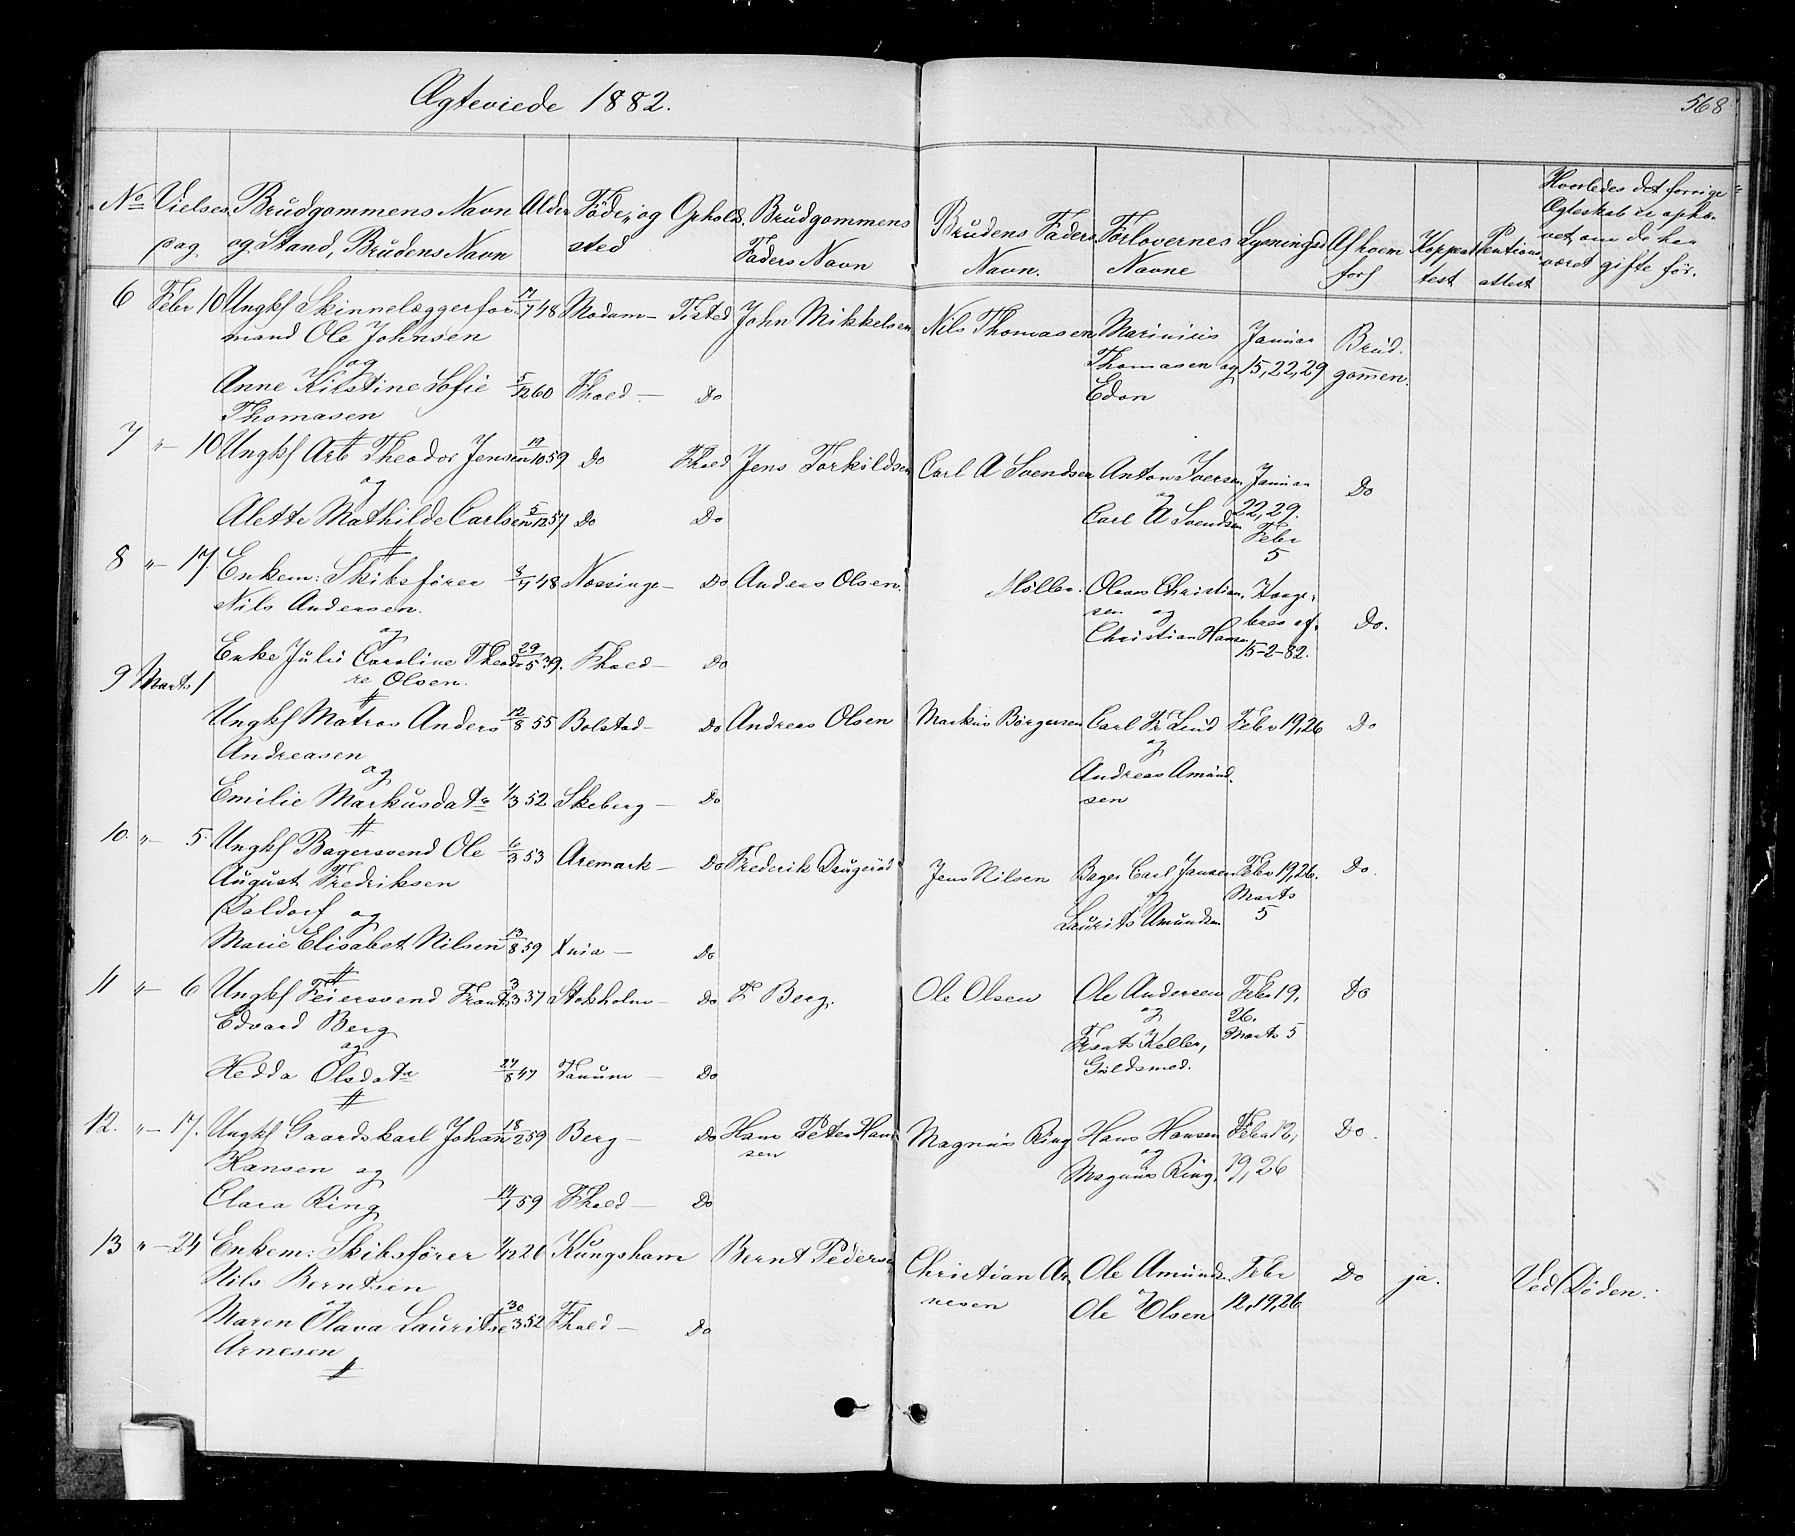 Ægteviede 1882.
568
No Vielses Brudgommens Navn Alder Føde- og Opholds. Brudgommens Brudens Faders Forlovernes Lysningsd Af hvem Koppeat Hvorledes det forrige
Dag og Stand, Brudens Navn sted Faders Navn Navn. Navne test attest Ægteskab er ophæ-
vet, om de har
været gifte før.
6 Febr 10 Ungkl Skinnelæggerfor- 17/7 48 Modum - Tisted John Mikkelsen Nils Thomasen Marinius Januar Brud-
mand Ole Johnsen Thomasen og 15, 22, 29 gommen.
og Edon
Anne Kirstine Sofie 5/12 60 Fhald - Do
Thomasen
7 " - 10 Ungkl Arb Theodor Jensen 19/10 59 Do Fhald Jens Torkildsen Carl A Svendsen Anton Iversen Januar Do
og og 22, 29.
Alette Mathilde Carlsen 5/12 57 Do Do Carl A Svendsen Febr
5
8 " - 17 Enkem: Skibsfører 3/7 48 Næssinge - Do Anders Olsen. Møller. Olaves Christian- Konge-
Nils Andersen. sen og brev af Do.
og Christian Hansen 15-2-82.
Enke Julie Caroline Theodo 29/5 39. Fhald - Do
re Olsen.
9 Marts 1
Ungkl Matros Anders 12/8 55 Bolstad - Do Andreas Olsen Markus Børgersen Carl Fr Lund Febr 19, 26 Do
Andreasen og
og Andreas Amund-
Emilie Markusdatr 1/3 52 Skeberg - Do sen
10. " - 5. Ungkl Bagersvend Ole 6/3 53 Aremark - Do Frederik Daugerød Jens Nilsen Bager Carl Jansen Febr 19, 26. Do.
August Fredriksen og Marts
Doldorf og Laurits Amundsen 5
Marie Elisabet Nilsen 13/8 59 Xnia - Do
11 " - 6 Ungkl Feiersvend Frants 3/3 37 Stokholm - Do F Berg. Ole Olsen Ole Andersen Febr 19, Do
Edvard Berg og 26.
og Frants Keller, Marts 5
Hedda Olsdatr 27/8 47 Tanum - Do Guldsmed.
12. " - 17. Ungkl Gaardskarl Johan 18/2 59 Berg - Do Hans Peter Han Magnus Ring Hans Hansen Febr 12, Do.
Hansen og sen og 19, 26
Clara Ring 14/7 59 Fhald - Do Magnus Ring.
13 " - 24 Enkem: Skibsfører 1/12 26 Kungsham Bernt Pedersen Christian Ar- Ole Amunds. Febr Do ja. Ved Døden.
Nils Berntsen nesen og 12, 19, 26
og Ole Olsen
Maren Olava Lauritse 30/3 52 Fhald - Do
Arnesen